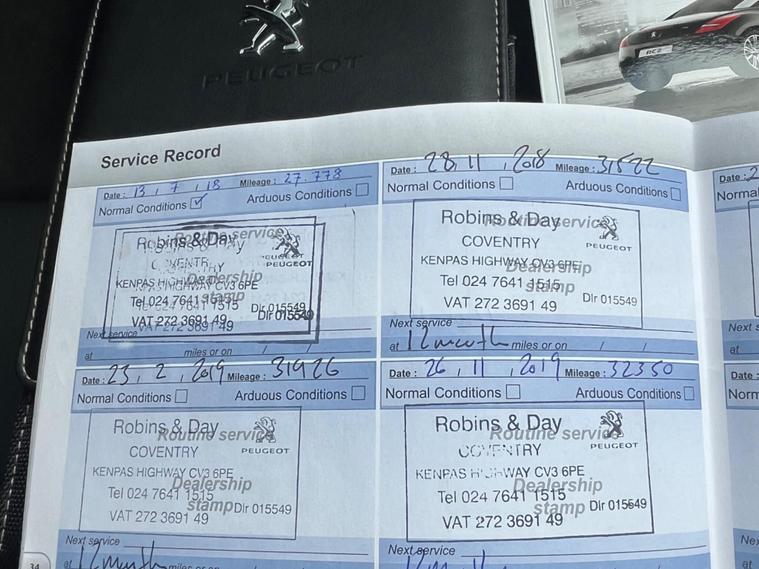 PEUGEOT
RCZ
Service Record
Date : 13 , 7 , 18 Mileage : 27,778
Normal Conditions ✓ Arduous Conditions
Routine service
Robins & Day
PEUGEOT
COVENTRY
KENPAS HIGHWAY CV3 6PE
Dealership
Tel 024 7641 1515
stamp
Dlr 015549
VAT 272 3691 49
Next service
at miles or on / /
Date : 28 , 11 , 2018 Mileage : 31522
Normal Conditions Arduous Conditions
Robins & Day
Routine service
COVENTRY
PEUGEOT
KENPAS HIGHWAY CV3 6PE
Dealership
Tel 024 7641 1515
stamp
VAT 272 3691 49 Dlr 015549
Next service
at 12 month miles or on / /
Date : 23 , 2 , 2019 Mileage : 31926
Normal Conditions Arduous Conditions
Robins & Day
Routine service
COVENTRY
PEUGEOT
KENPAS HIGHWAY CV3 6PE
Dealership
Tel 024 7641 1515
stamp
VAT 272 3691 49 Dlr 015549
Next service
at 12 month miles or on
34
Date : 26 , 11 , 2019 Mileage : 32350
Normal Conditions Arduous Conditions
Robins & Day
Routine service
COVENTRY
PEUGEOT
KENPAS HIGHWAY CV3 6PE
Dealership
Tel 024 7641 1515
stamp
VAT 272 3691 49 Dlr 015549
Next service
at 12 month
Date : 2
Normal
Next s
at
Date :
Norm
Ne
at